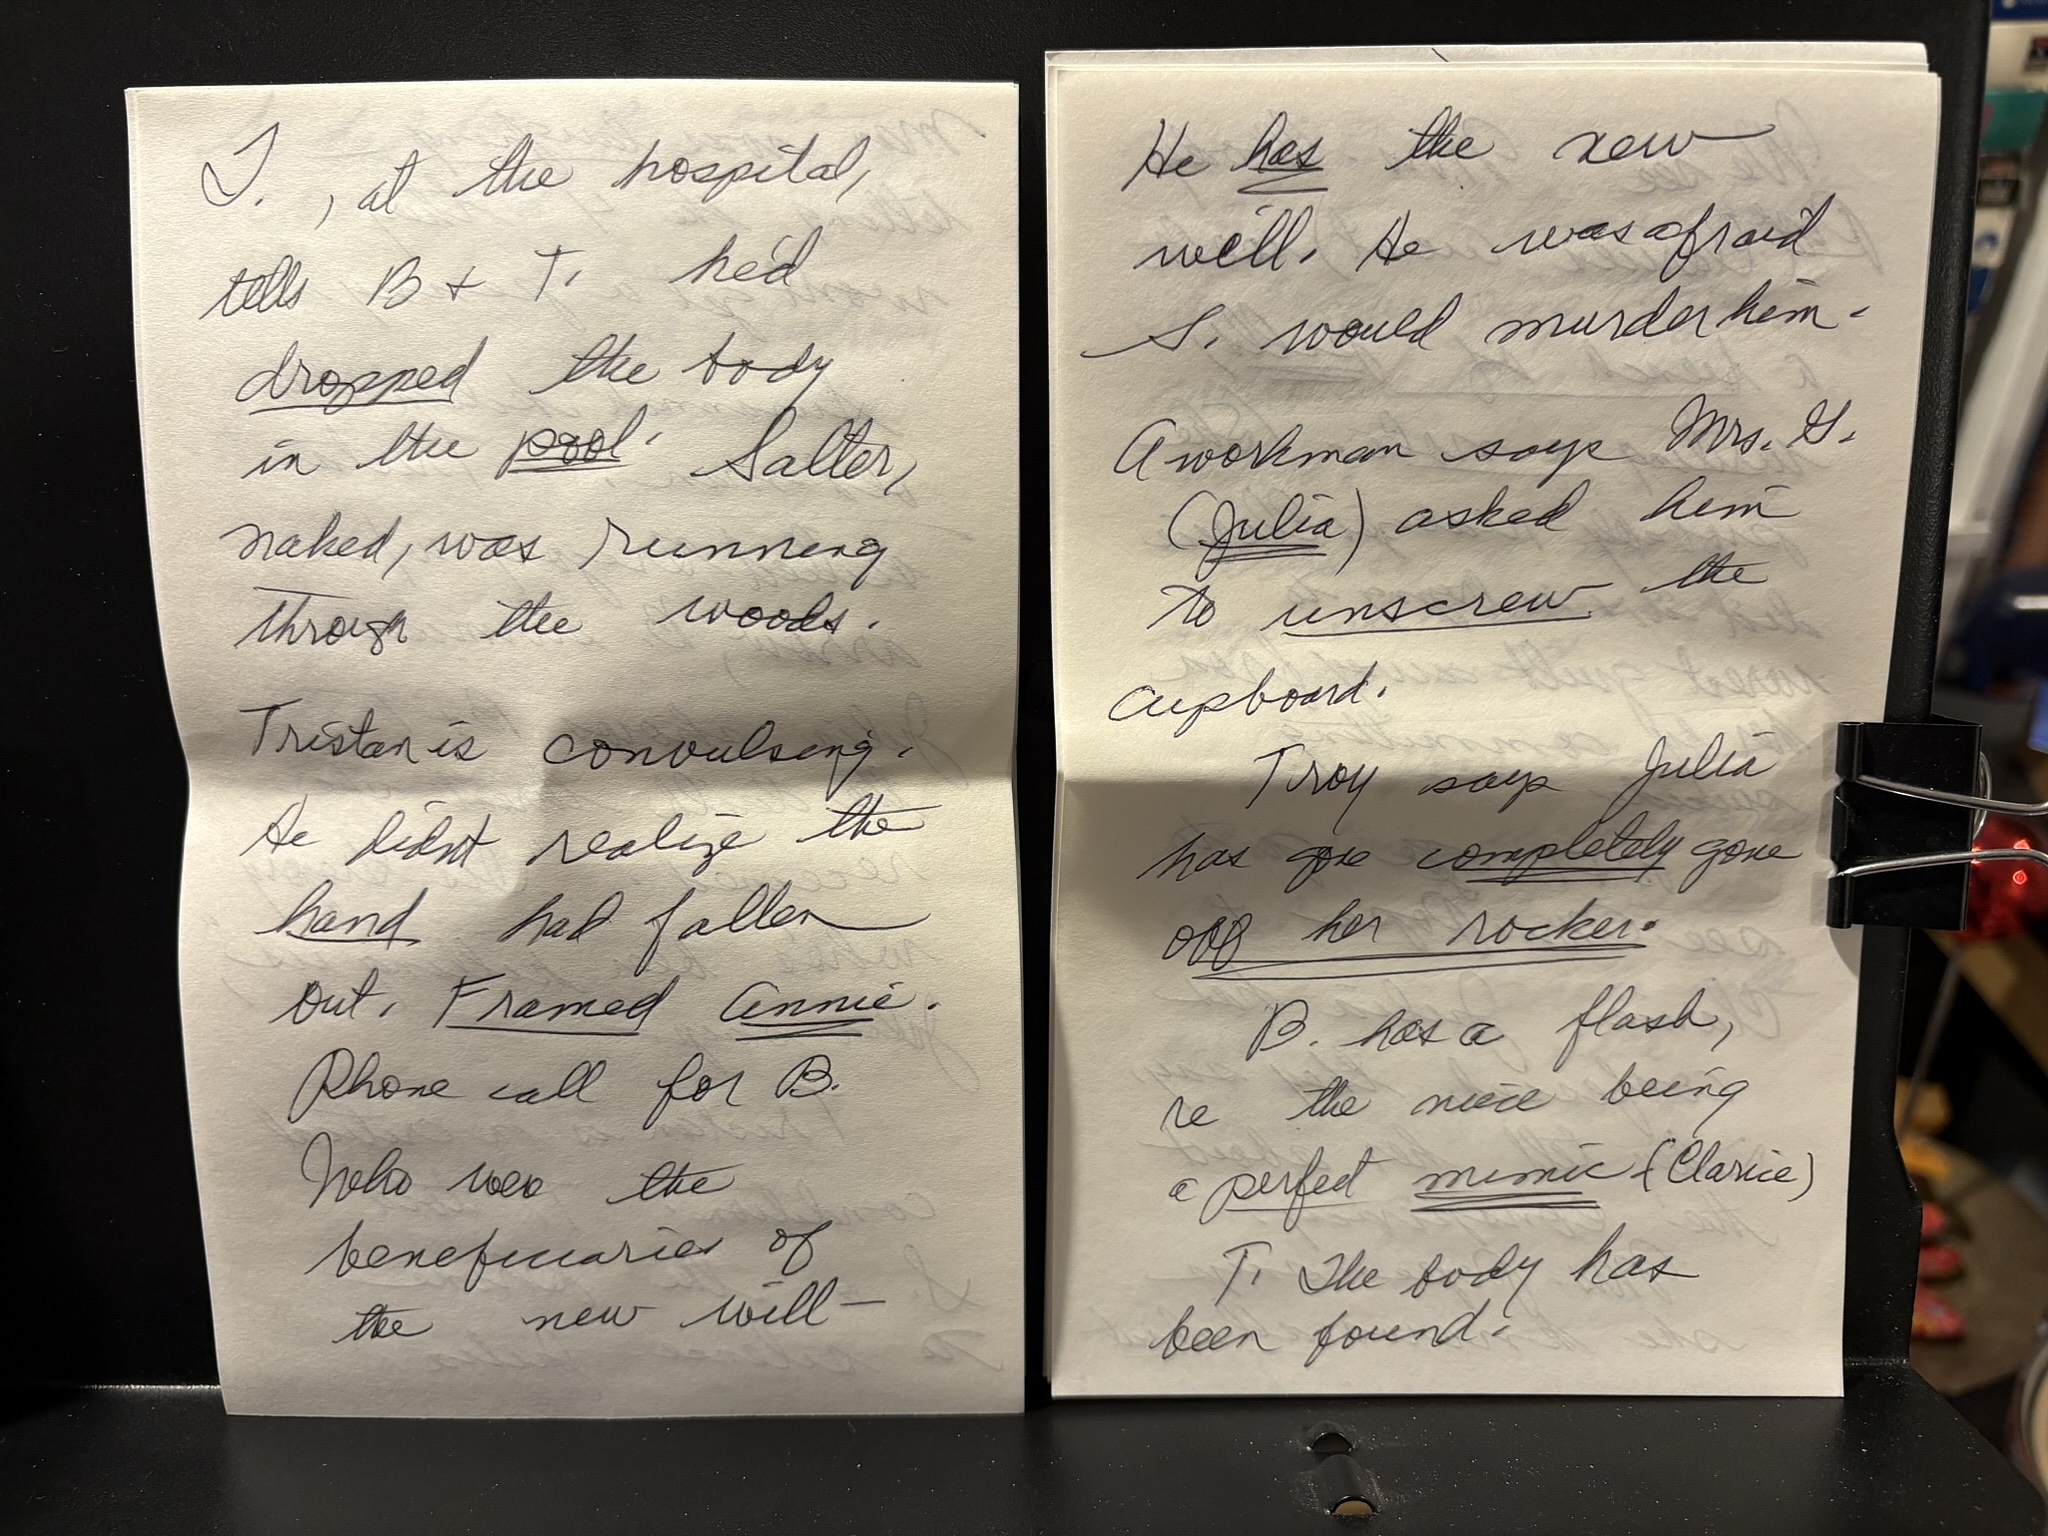 T. , at the hospital,
tells B + T. he'd
dropped the body
in the pool. Salter,
naked, was running
through the woods.
Tristan is convulsing.
He didn't realize the
hand had fallen
out. Framed Annie.
Phone call for B.
Who were the
beneficiaries of
the new will—
He has the new
will. He was afraid
S. would murder him.
A workman says Mrs. G.
(Julia) asked him
to unscrew the
cupboard.
Troy says Julia
has gone completely gone
off her rocker.
B. has a flash,
re the niece being
a perfect mimic (Clarice)
T. The body has
been found.